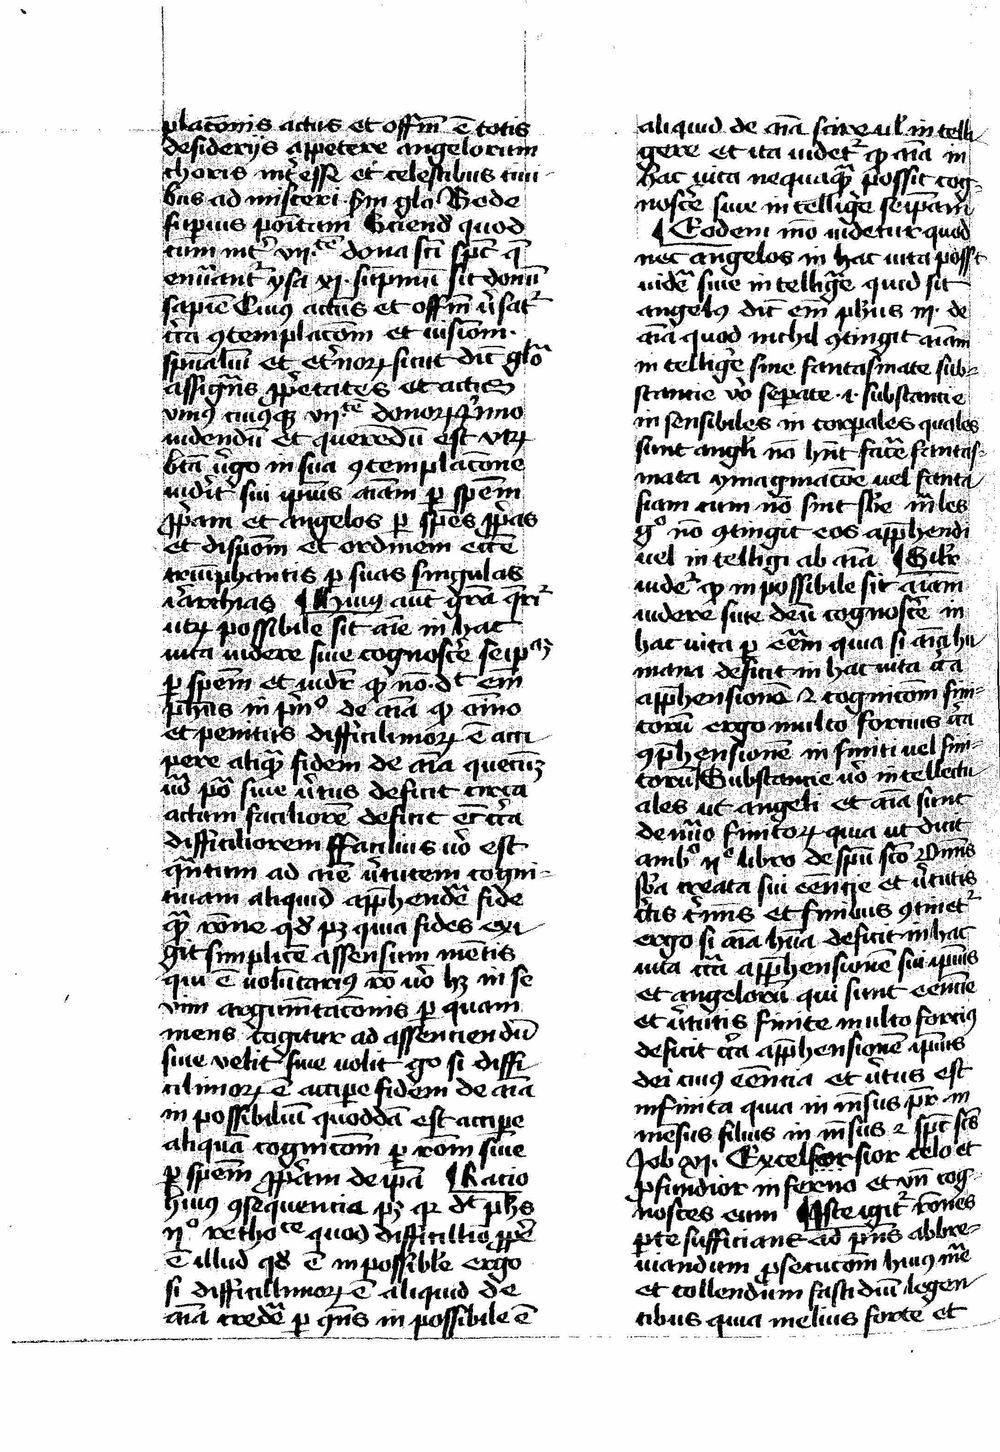 placōnis actus et offm̄ ē totis
desiderijs appetere angelorum
choris int̕esse et celestibus ciui-
bus ad misceri scḋm glo Bede
suꝑius poı̄tam Sciend̄ quod
cum int̕ vii.tē dona scī spc̄ q̄
enūant̕ ysa xj. sup̄mū sit donū
sapiē Cuius actus et offm̄ v̕sat̕
c̕ca ꝯtemplacōm et uisiōm.
spūalium et et̕norꝝ sicut dic̄ glō
assigns̄ ꝓp̕etates et actus
vniꝰ cuiusqꝫ vii.tē donorꝝ p̕mo
uidendū et querendū est vtrꝝ
btā v̕go in sua ꝯtemplacōne
uidit sui ipius aīam ꝑ spēm
ꝓp̕am et angelos ꝑ spēs ꝓp̕as
et dispōm et ordinem eccē
triūphantis ꝑ suas singulas
ierarchias Huius aut grā q̄rit̕
utrꝝ possibile sit aīe in hac
uita uidere siue cognosc̕e seip̄aꝫ
ꝑ spēm et uidet̕ qđ nō. dt̄ em̄
ph̄us in p̕mo de aīa qđ oı̄no
et penitus difficilimorꝝ ē acci
pere aliquā fidem de aīa quecūqꝫ
uō poā siue v̕tus deficit circa
actum faciliorē deficit ec̄ c̕ca
difficiliorem ffacilius uō est
quantum ad aīe v̕tutem cogni-
tiuam aliquid app̄hend̕e fide
quā rōne qđ pꝫ quia fides exi
git simplicē assensum mētis
qui ē voluntariꝰ rō uō hꝫ in se
vim argum̄tacōnis ꝑ quam
mens cogitur ad assenciendū
siue velit siue nolit go si diffi
cilimorꝝ ē accipe fidem de aīa
in possibiliū quoddā est accipe
aliquā cognicōm ꝑ rōm siue
ꝑ spēm ꝓp̕am de ip̄a Racio
huius ꝯsequencia pꝫ qꝛ dt̄ ph̄s
ijo retho.ce quod difficillio ꝓp̕e
ē illud qđ ē in possible ergo
si difficillimorꝝ ē aliquid de
aīa cred̕e ꝑ q̄ns in possibile ē
aliquid de aīa scire ul̕ in telli
gere et ita uidet̕ qđ aīa in
hac uita nequaquā possit cog-
nosc̕e siue in tellig̕e seip̄am
Eodem mō uidetur quod
nec angelos in hac uita possit
uid̕e siue in tellig̕e quid sit
angelus dic̄ em̄ ph̄us iij. de
aīa quod nichil ꝯtingit aīam
in tellig̕e sine fantasmate sub-
stancie uō seperate .i. substancie
in sensibiles in corꝑales quales
sunt angli nō hn̄t fac̕e fantas-
mata ymaginacōe uel fanta
siam cum nō sint sbē māles
go nō ꝯtingit eos app̄hendi
uel in telligi ab aīa Silr̕
uidet̕ qđ in possibile sit aīam
uidere siue deū cognosc̕e in
hac uita ꝑ eēm quia si aīa hu
mana deficit in hac uita c̕ca
app̄hensionē et cognicōm fini-
torū ergo multo forcius c̕ca
ꝯp̄hensionē in finiti uel fini-
torū Substancie uō intellectu
ales ut angeli et aīa sunt
de nuō finitorꝝ quia ut dicit
ambo ijo libro de spū scō Omis
sba creata sui eēncie et v̕tutis
c̕tis t̕mīs et finibus ꝯtinet̕
ergo si aīa hūa deficit in hac
uita c̕ca app̄hensionē sui ipius
et angelorū qui sunt eēncie
et v̕tutis finite multo forcius
deficit c̕ca app̄hensionē ipius
dei cuius eēncia et v̕tus est
infinita quia in mēsus pr̄ in
mēsus filius in mēsus et spc̄ scs̄
Job xj. Excelsior celo et
ꝓfundior inferno et vn̄ cog-
nosces eum Iste igit̕ rōnes
ꝑte sufficiant ad p̄ns abbre-
uiandum ꝓsecucōm huius mē
et tollendum fastidiū legen
tibus quia melius forte et